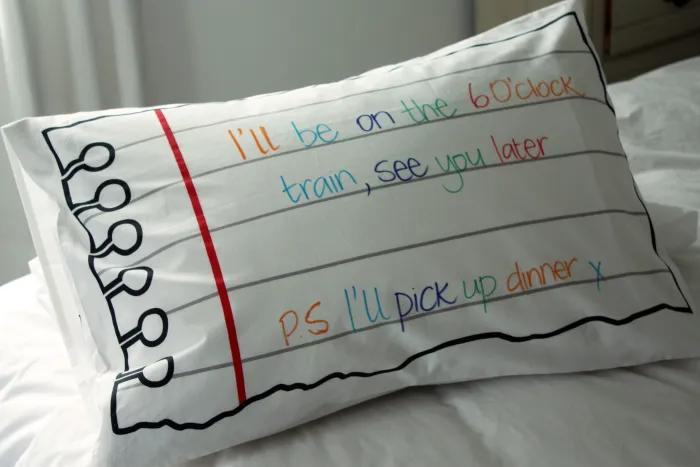 I'll be on the 6 O'clock
train, see you later
P.S I'll pick up dinner x